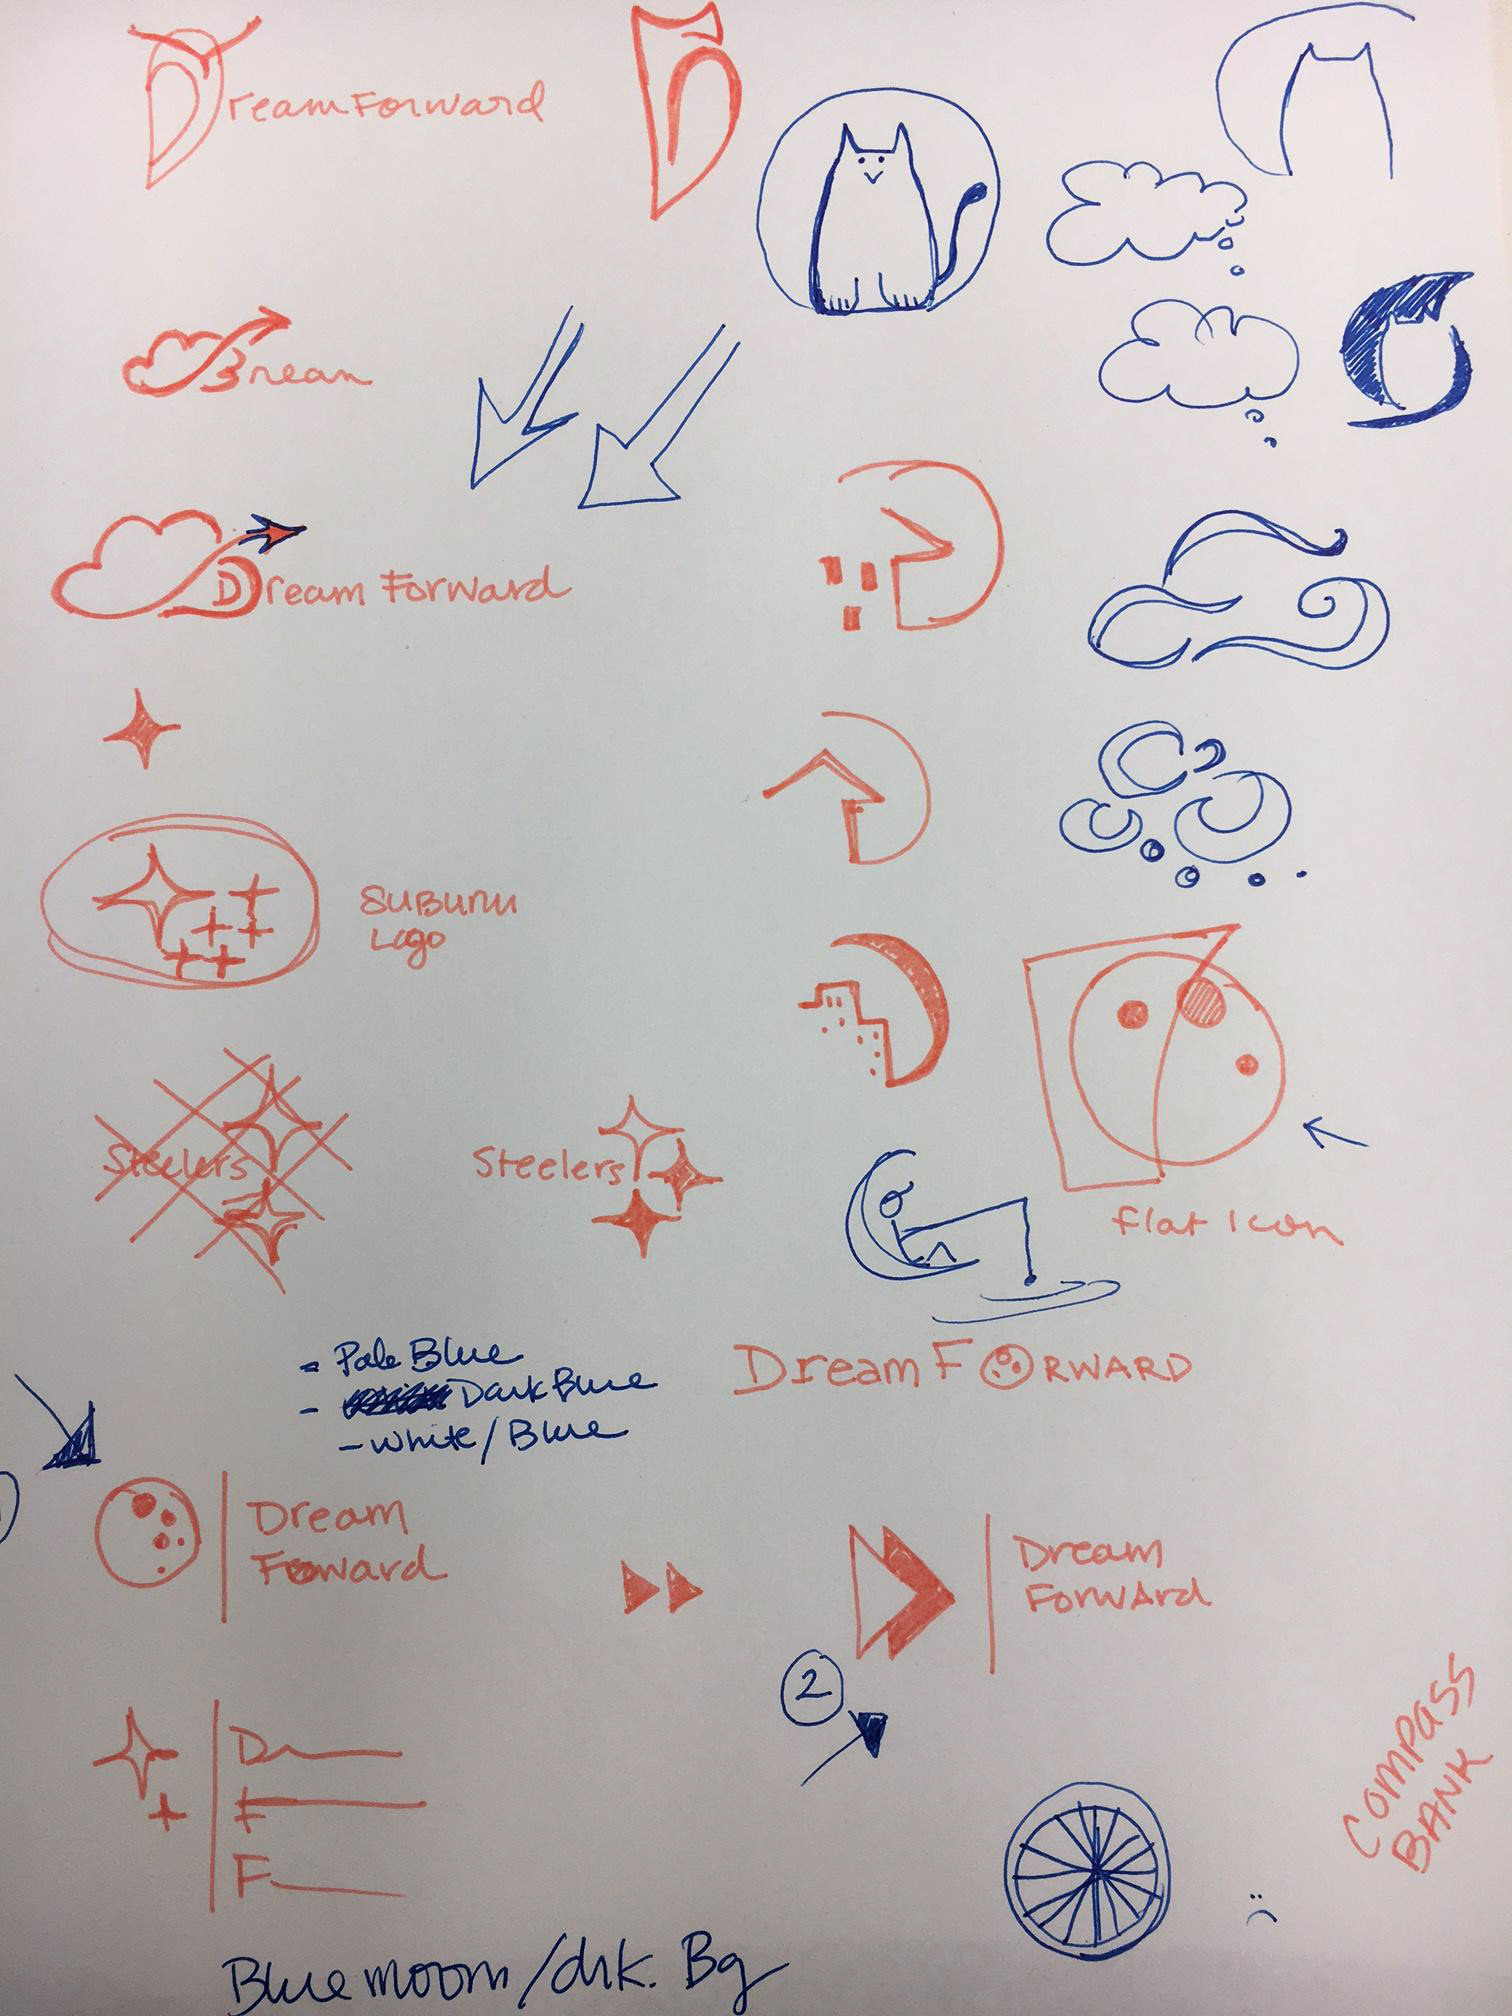 Dream Forward
Drean
Dream Forward
SUBURU
Logo
Steelers
Steelers
flat Icon
- Pale Blue
- Dark Blue
- White/Blue
Dream FORWARD
Dream
Forward
Dream
Forward
2
D
F
F
COMPASS
BANK
Blue moom/drk. Bg